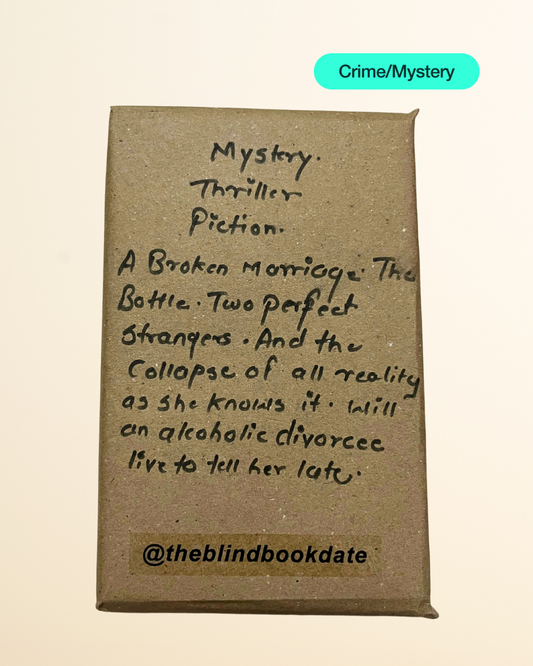 Crime/Mystery
Mystery.
Thriller
Fiction.
A Broken Marriage. The
Bottle. Two perfect
strangers. And the
Collapse of all reality
as she knows it. Will
an alcoholic divorcee
live to tell her late.
@theblindbookdate